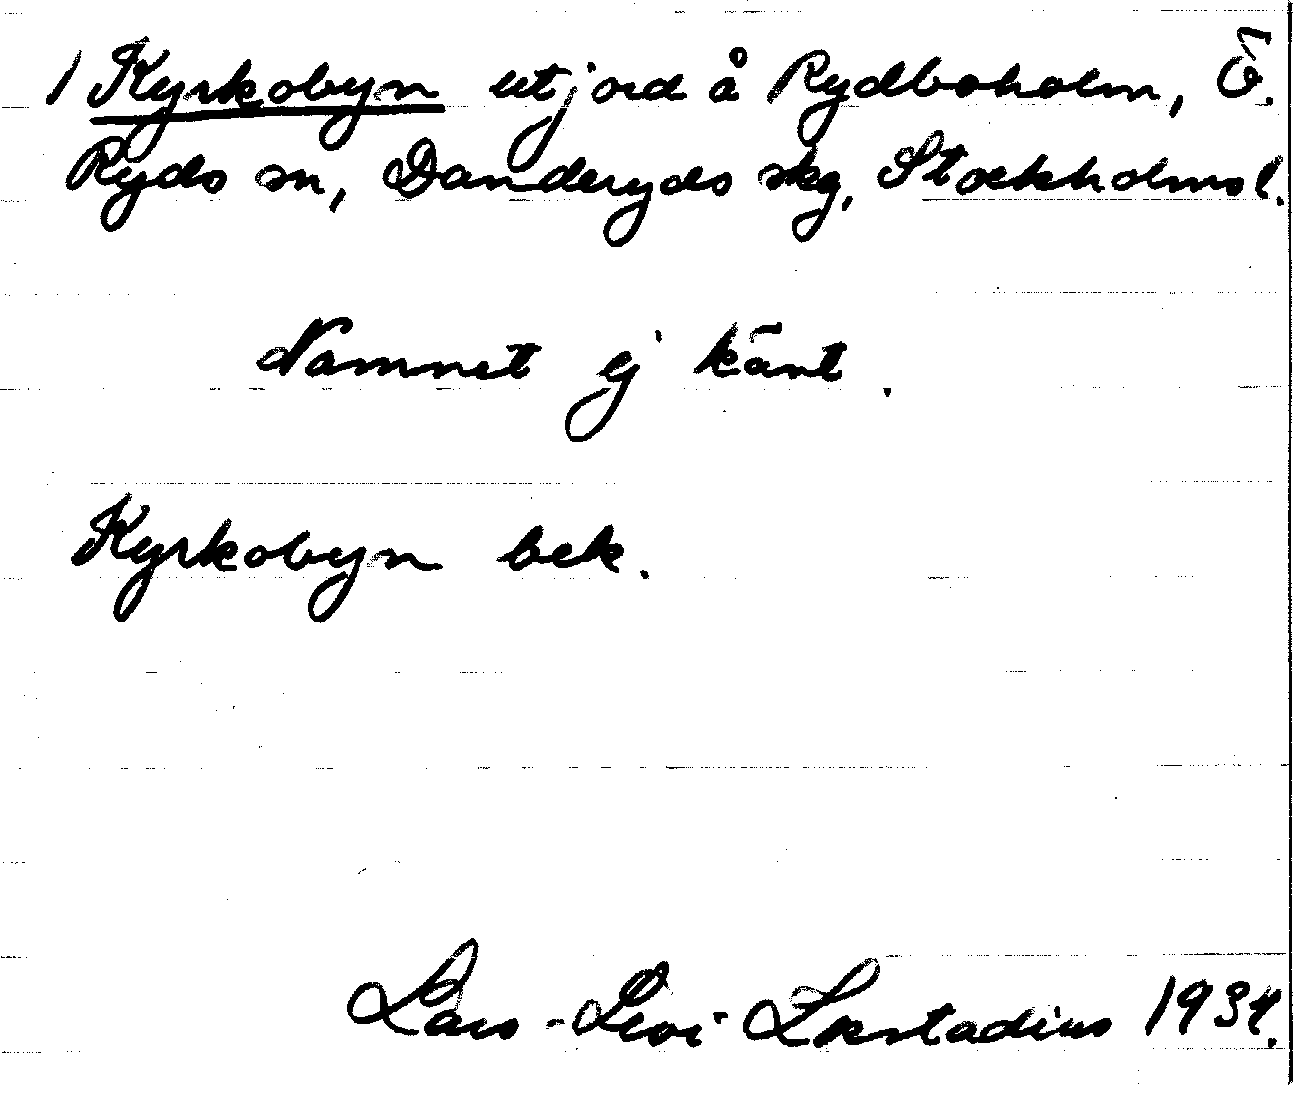 1 Kyrkobyn utjord å Rydboholm, Ö.
Ryds sn, Danderyds skg, Stockholms l.
Namnet ej känt.
Kyrkobyn bek.
Lars-Levi Læstadius 1934.